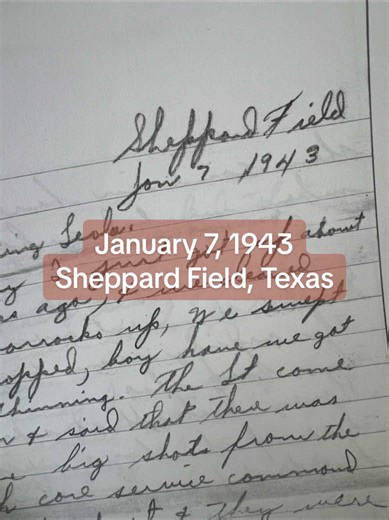 Sheppard Field
Jan 7 1943
January 7, 1943
Sheppard Field, Texas
about
ago
up, we swept
opped, boy have we got
. The Lt come
& said that there was
big shots from the
core service command
& they were